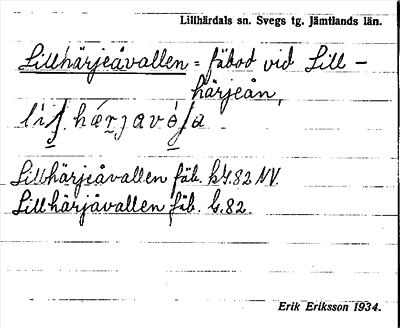 Lillhärdals sn. Svegs tg. Jämtlands län.
Lillhärjeåvallen = fäbod vid Lill-
härjeån,
Lillhärjeåvallen fäb. k4.82 NV.
Lillhärjåvallen fäb. G.82.
Erik Eriksson 1934.